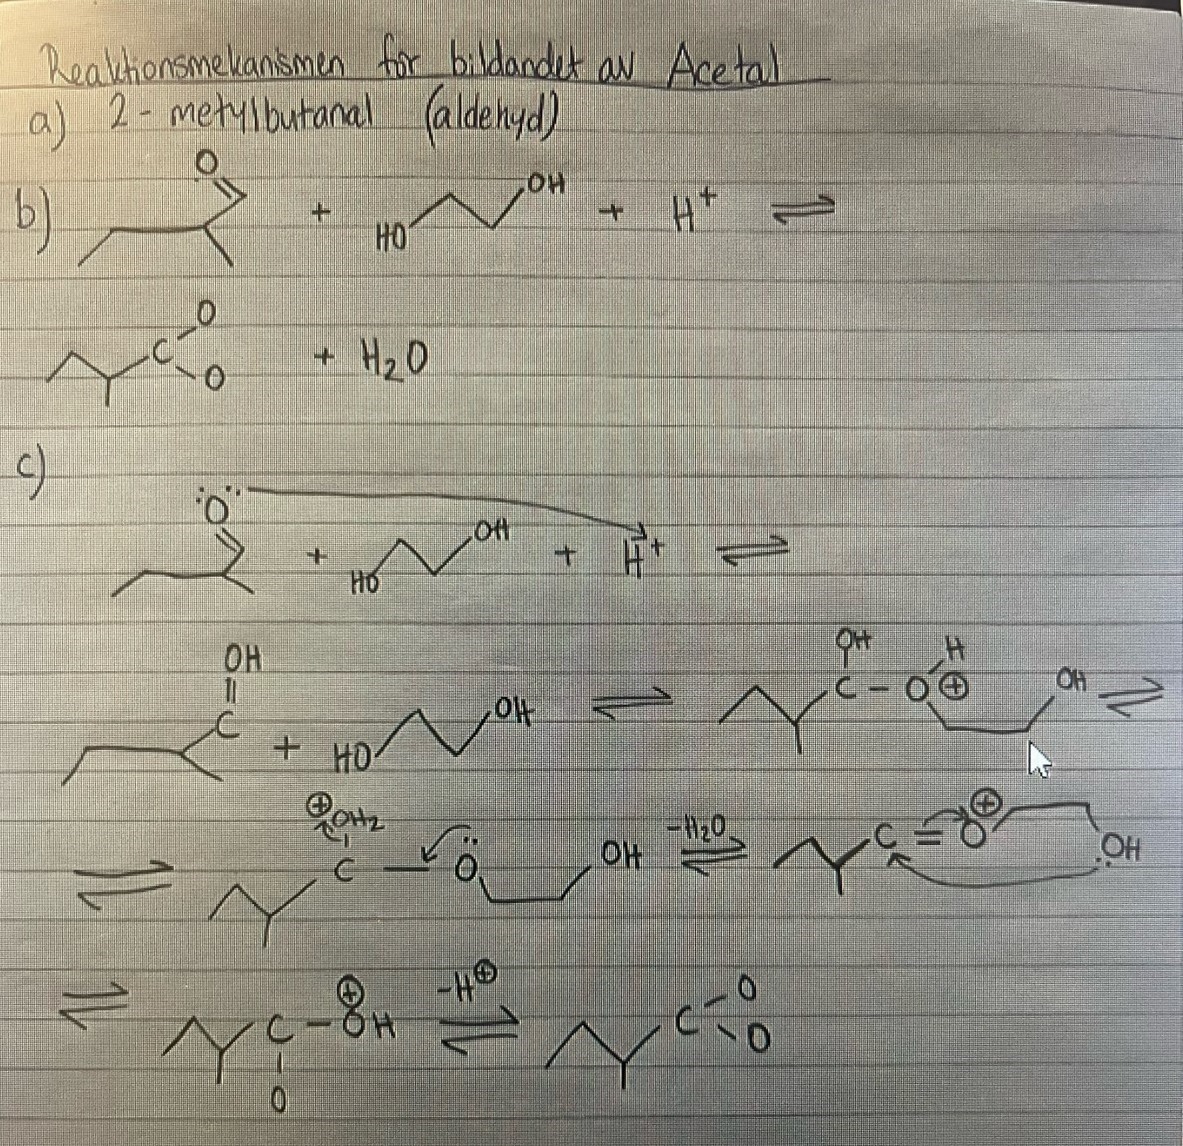 Reaktionsmekanismen för bildandet av Acetal
a) 2-metylbutanal (aldehyd)
b) O + HO OH + H⁺ ⇌
C O O + H₂O
c)
:O¨ + HO OH + H⁺ ⇌
OH C + HO OH ⇌ OH C - O H ⊕ OH ⇌
⇌ ⊕ OH₂ C - Ö OH -H₂O ⇌ C = O ⊕ OH
⇌ C - O ⊕ H O -H⊕ ⇌ C O O